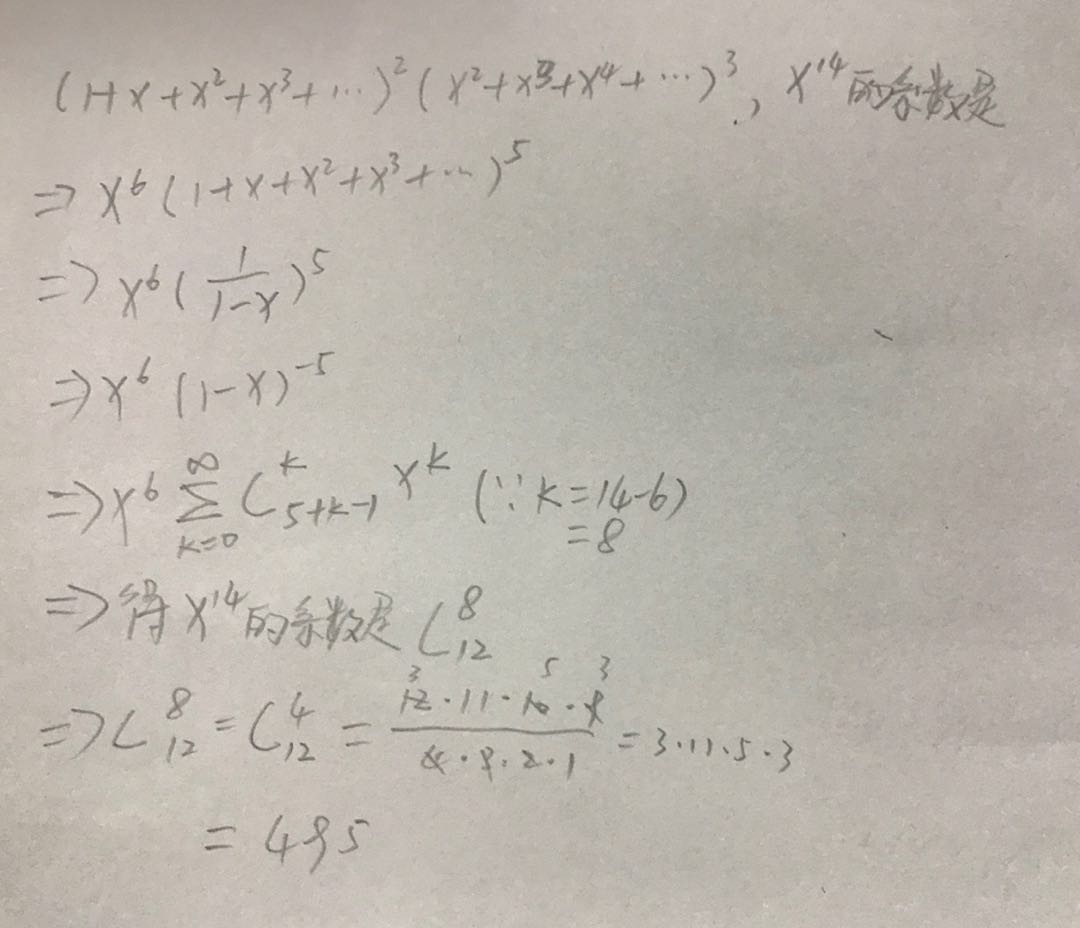 (1+x+x²+x³+…)²(x²+x³+x⁴+…)³, x¹⁴的係数是
⇒ x⁶(1+x+x²+x³+…)⁵
⇒ x⁶(1/(1-x))⁵
⇒ x⁶(1-x)⁻⁵
⇒ x⁶ ∑_{k=0}^{∞} C_{5+k-1}^{k} x^k (∵ k=14-6)
=8
⇒ 得 x¹⁴的係数是 C_{12}^{8}
⇒ C_{12}^{8} = C_{12}^{4} = (12·11·10·9)/(4·3·2·1) = 3·11·5·3
= 495